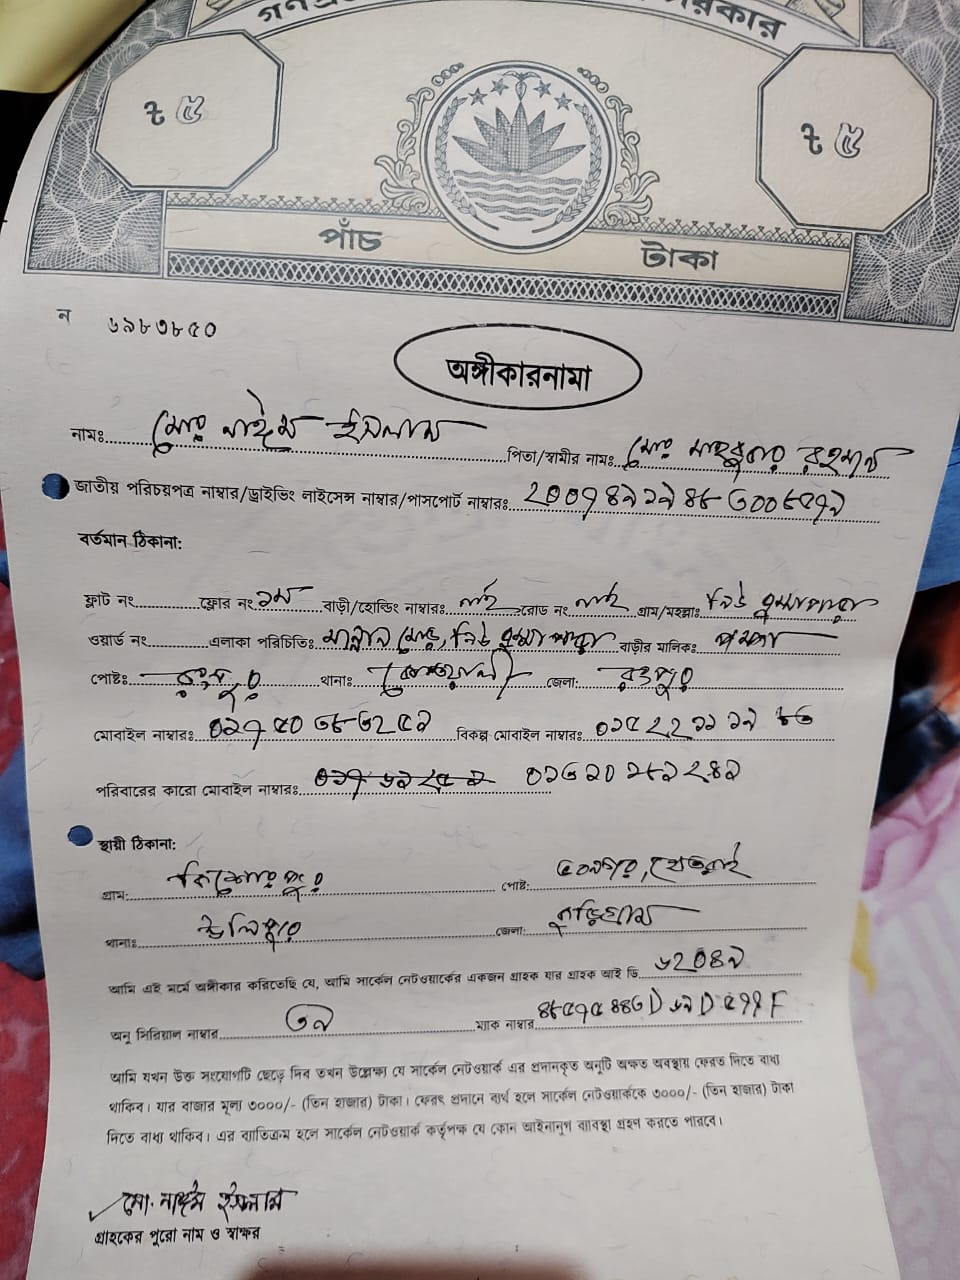 ৳ ৫
৳ ৫
পাঁচ টাকা
ন ৬৯৮৩৮৫০
অঙ্গীকারনামা
নামঃ মোঃ নাঈম ইসলাম পিতা/স্বামীর নাম: মোঃ মাহবুবার রহমান
জাতীয় পরিচয়পত্র নাম্বার/ড্রাইভিং লাইসেন্স নাম্বার/পাসপোর্ট নাম্বারঃ
বর্তমান ঠিকানা:
ফ্লাট নং ফ্লোর নং ১ম বাড়ী/হোল্ডিং নাম্বারঃ নাই রোড নং নাই গ্রাম/মহল্লাঃ নিউ
ওয়ার্ড নং এলাকা পরিচিতিঃ মোড়, নিউ বাড়ীর মালিকঃ
পোষ্টঃ রংপুর থানাঃ কোতয়ালী জেলা: রংপুর
মোবাইল নাম্বারঃ বিকল্প মোবাইল নাম্বারঃ
পরিবারের কারো মোবাইল নাম্বারঃ
স্থায়ী ঠিকানা:
গ্রাম: কিশোরপুর পোষ্ট:
থানাঃ উলিপুর জেলা: কুড়িগ্রাম
আমি এই মর্মে অঙ্গীকার করিতেছি যে, আমি সার্কেল নেটওয়ার্কের একজন গ্রাহক যার গ্রাহক আই ডি ৬২০৪৯
অনু সিরিয়াল নাম্বার ৩৯ ম্যাক নাম্বার
আমি যখন উক্ত সংযোগটি ছেড়ে দিব তখন উল্লেক্ষ্য যে সার্কেল নেটওয়ার্ক এর প্রদানকৃত অনুটি অক্ষত অবস্থায় ফেরত দিতে বাধ্য
থাকিব। যার বাজার মূল্য ৩০০০/- (তিন হাজার) টাকা। ফেরৎ প্রদানে ব্যর্থ হলে সার্কেল নেটওয়ার্ককে ৩০০০/- (তিন হাজার) টাকা
দিতে বাধ্য থাকিব। এর ব্যতিক্রম হলে সার্কেল নেটওয়ার্ক কর্তৃপক্ষ যে কোন আইনানুগ ব্যবস্থা গ্রহণ করতে পারবে।
মো. নাঈম ইসলাম
গ্রাহকের পুরো নাম ও স্বাক্ষর